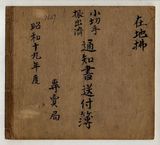 在地拂
小切手
振出濟
通知書送付簿
昭和十九年度
專賣局